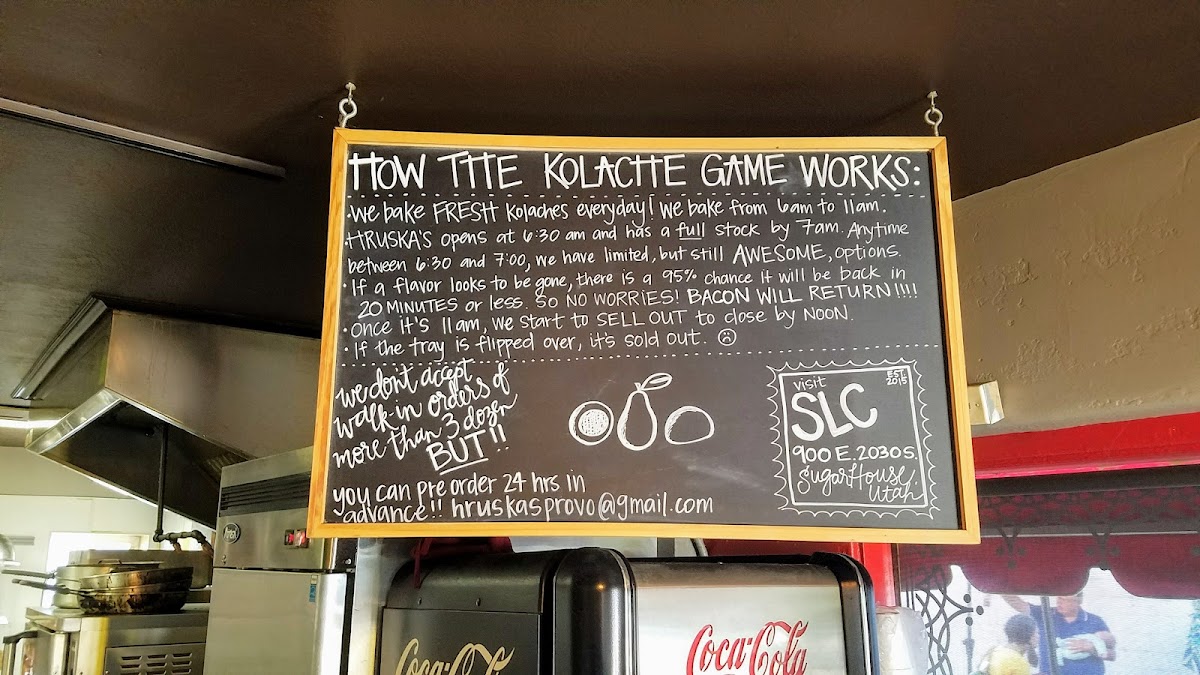 HOW THE KOLACHE GAME WORKS:
· We bake FRESH kolaches everyday! We bake from 6am to 11am.
· HRUSKA'S opens at 6:30 am and has a full stock by 7am. Anytime
between 6:30 and 7:00, we have limited, but still AWESOME, options.
· If a flavor looks to be gone, there is a 95% chance it will be back in
20 MINUTES or less. SO NO WORRIES! BACON WILL RETURN!!!!
· Once it's 11am, we start to SELL OUT to close by NOON.
· If the tray is flipped over, it's sold out. ☹
we don't accept
walk-in orders of
more than 3 dozen
BUT!!
you can pre order 24 hrs in
advance!! hruskasprovo@gmail.com
visit
EST.
2015
SLC
900 E. 2030 S.
Sugar House,
Utah
Coca-Cola
Coca-Cola